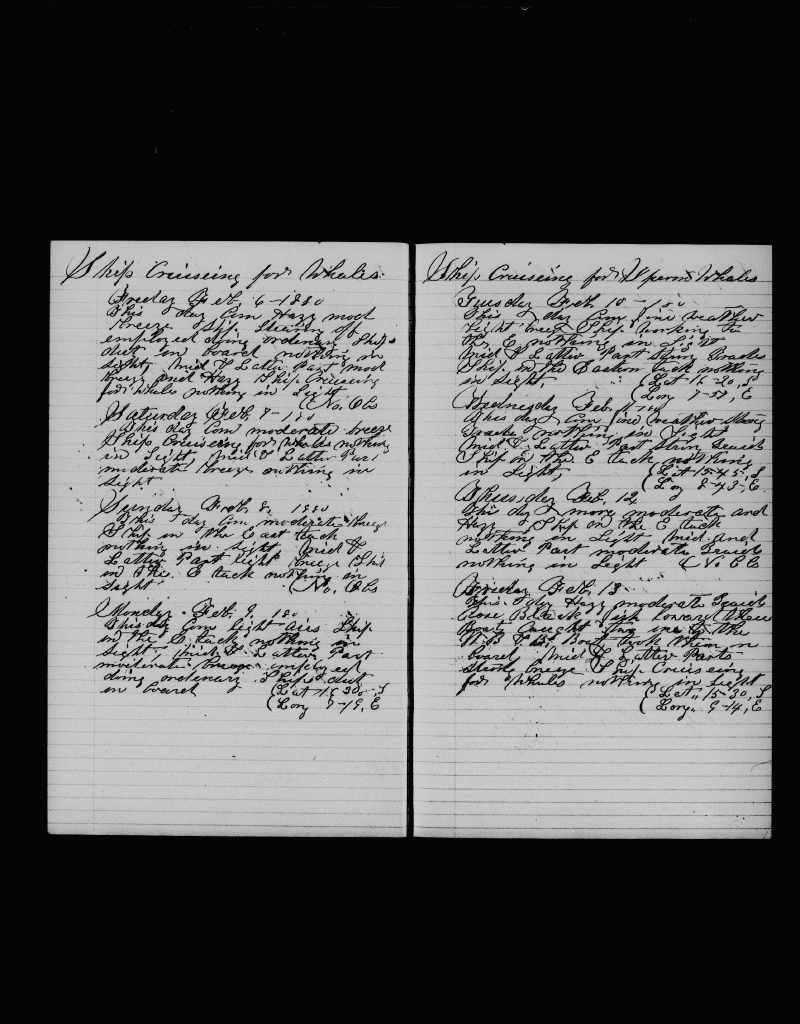 Ship Cruiseing for Whales.
Friday Feb, 6 - 1880
This day Com Hazy mod
breeze Ship Steering off
employed doing ordenary Ships
dut on board nothing in
sight, Mid & Latter Part mod
breeze and Hazy Ship Cruiseing
for Whals nothing in Sight
(No, Obs
Saturday Feb, 7 - 180
This day Com moderate breeze
Ship Cruiseing for Whals nothing
in Sight, Mid & Latter Part
moderate breeze nothing in
Sight
Sunday Feb, 8, 1880
This day Com moderate breeze
Ship in the East tack
nothing in sight Mid &
Latter Part light breeze Ship
in the E tack nothing in
sight (No, Obs
Monday. Feb, 9, 180
This day Com light airs Ship
in the E tack nothing in
sight, Mid & Latter Part
moderate breeze employed
doing ordenary Ships dut
on board (Lat - 16 30 - S
(Long 7 - 19, E
Ship Cruiseing for Sperm Whales
Tuesday Feb 10 - 180
This day Com fine weather
light breeze Ship working to
the E nothing in sight
Mid & Latter Part Strong Breeze
Ship in the Eastern tack nothing
in sight, (Lat - 16 - 20, S
(Long 7 - 57, E
Wednesday Feb, 11 - 180
This day Com fine weather Strong
nothing in Sight
Mid & Latter Part Strong
Ship on the E tack nothing
in Sight, (Lat 15 - 45, S
(Long 8 - 43 - E
Thursday Feb, 12
This day more moderate and
Hazy Ship on the E tack
nothing in Sight Mid and
Latter Part moderate
nothing in Sight (No Obs
Friday Feb, 13
This day Hazy moderate
Black fish lowerd
Boats Caught one to the
W. B. & B. Boat took them on
board Mid & Latter Parts
strong breeze Ship Cruiseing
for Whales nothing in Sight
(Lat,, 15 - 30, S
(Long,, 9 - 14, E